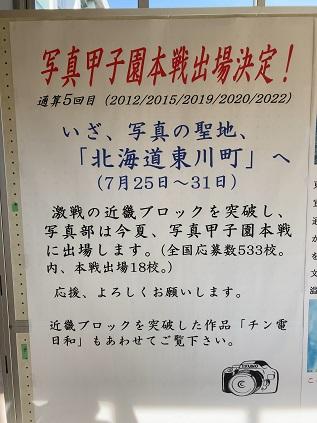 写真甲子園本戦出場決定！
通算5回目（2012/2015/2019/2020/2022）
いざ、写真の聖地、
「北海道東川町」へ
（7月25日～31日）
激戦の近畿ブロックを突破し、
写真部は今夏、写真甲子園本戦
に出場します。（全国応募数533校。
内、本戦出場18校。）
応援、よろしくお願いします。
近畿ブロックを突破した作品「チン電
日和」もあわせてご覧下さい。